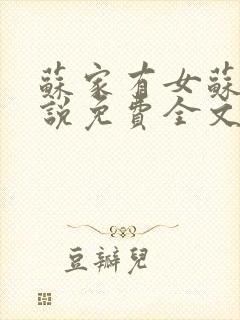 蘇家有女蘇
說免費全文
豆瓣兒